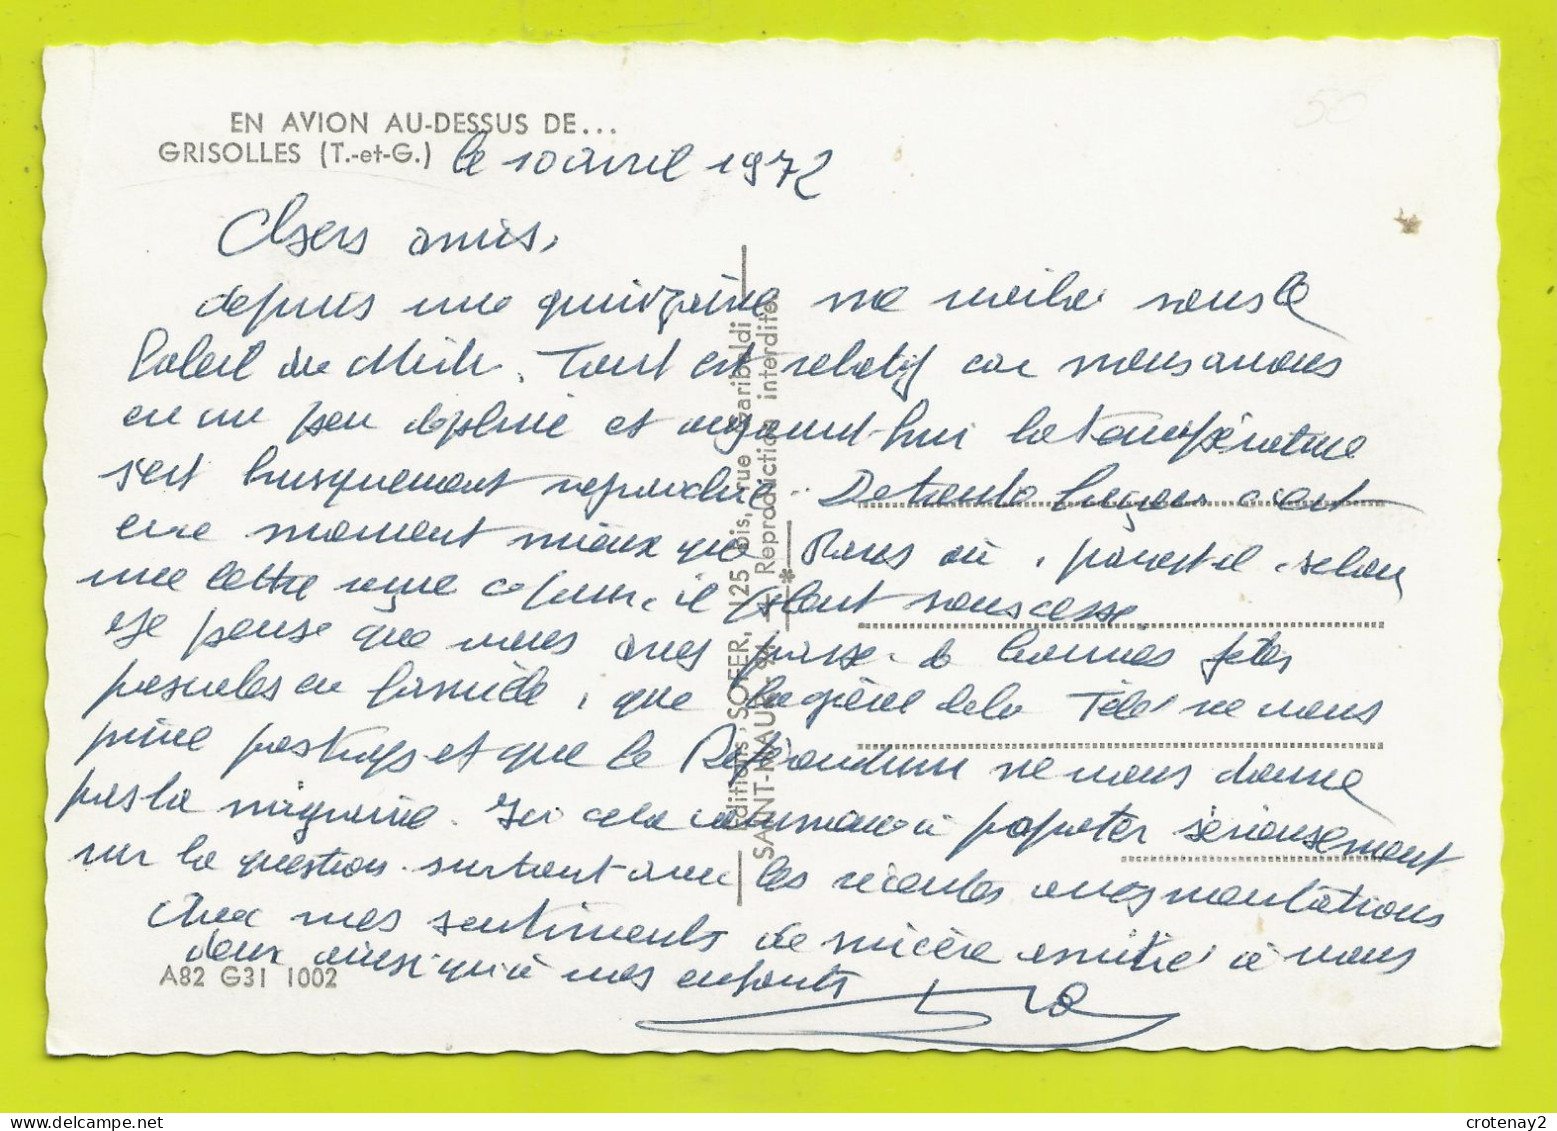 EN AVION AU-DESSUS DE...
GRISOLLES (T.-et-G.) le 10 avril 1972
50
Chers amis,
depuis une quinzaine me voilà sous le
Soleil du Midi. Tout est relatif car nous avons
eu un peu de pluie et aujourd'hui la température
s'est brusquement refroidie. De toute façon c'est
en ce moment mieux que Paris où, paraît-il, selon
une lettre reçue ce jour, il pleut sans cesse.
Je pense que vous avez passé de bonnes fêtes
pascales en famille, que la grève de la Télé ne vous
prive pas trop et que le Référendum ne vous donne
pas la migraine. Ici cela commence à papoter sérieusement
sur la question surtout avec les récentes augmentations
Avec mes sentiments de sincère amitié à vous
deux ainsi qu'à vos enfants
Editions SOFER, 125 bis, rue Garibaldi
SAINT-MAUR - 94 - Reproduction interdite.
A82 G31 1002
crotenay2